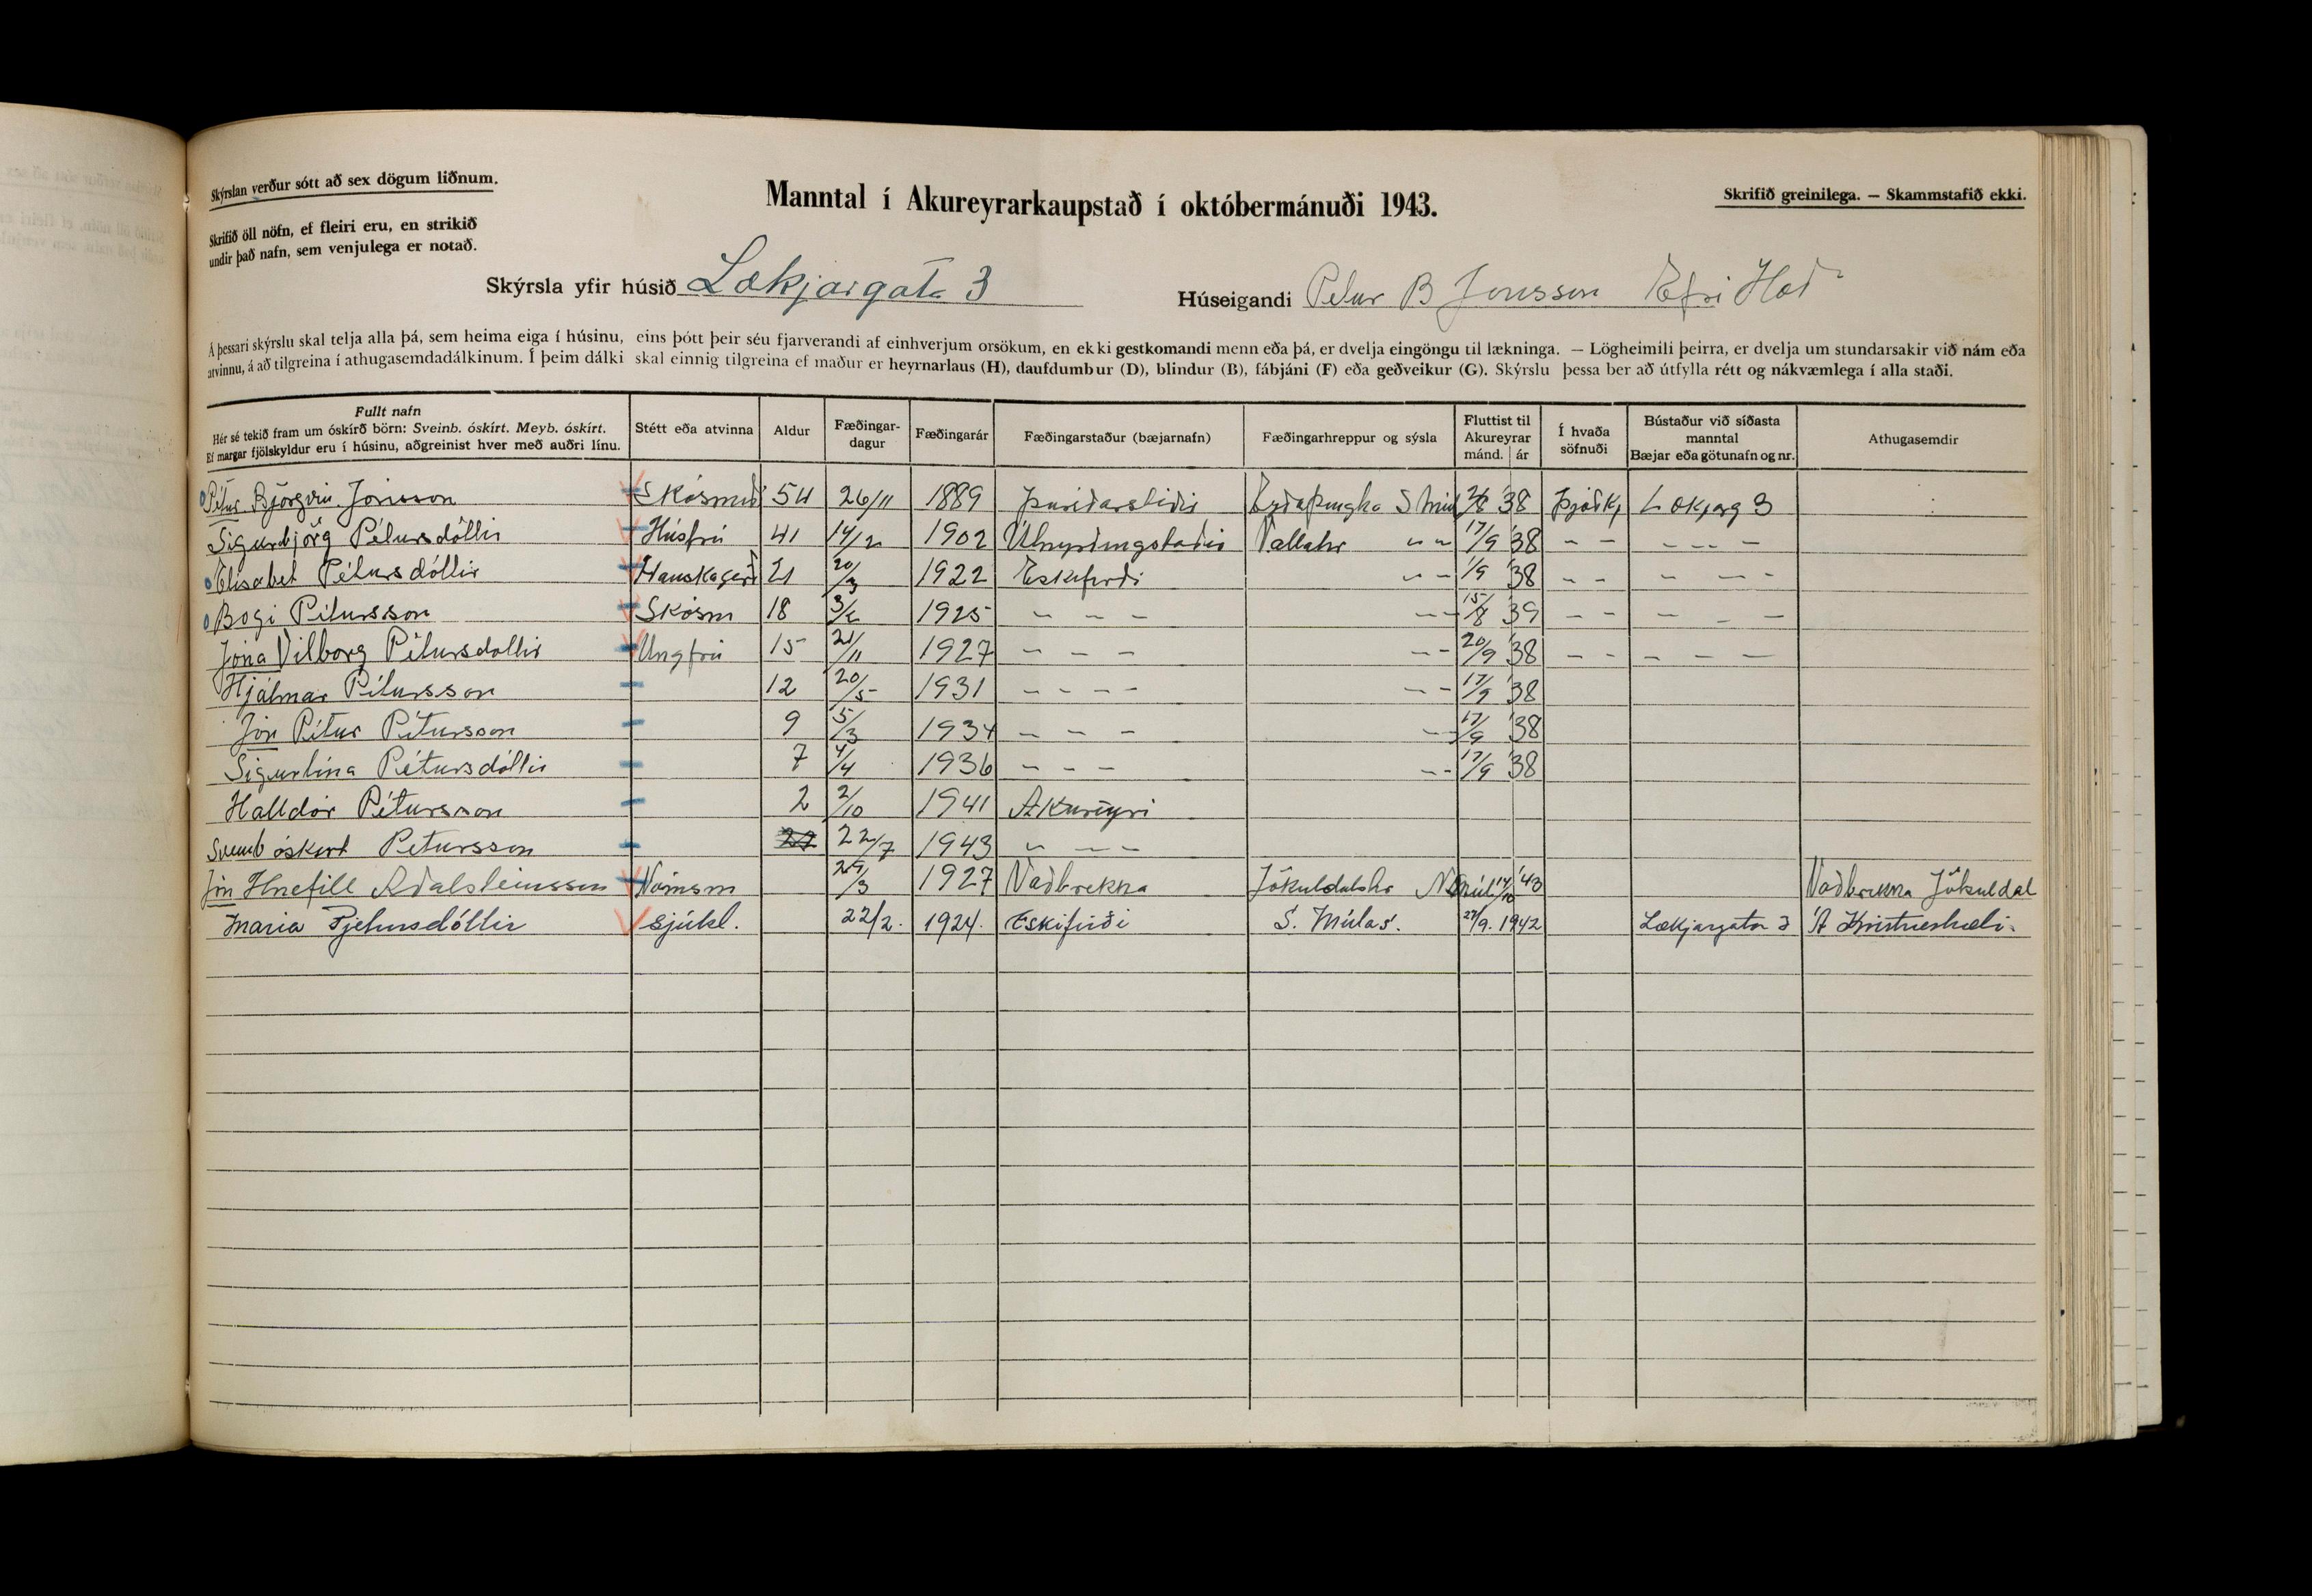 Skýrslan verður sótt að sex dögum liðnum.
Manntal í Akureyrarkaupstað í októbermánuði 1943.
Skrifið greinilega. — Skammstafið ekki.
Skrifið öll nöfn, ef fleiri eru, en strikið
undir það nafn, sem venjulega er notað.
Skýrsla yfir húsið Lækjargata 3
Húseigandi Petur B Jonsson Efri Hæð
Á þessari skýrslu skal telja alla þá, sem heima eiga í húsinu, eins þótt þeir séu fjarverandi af einhverjum orsökum, en ekki gestkomandi menn eða þá, er dvelja eingöngu til lækninga. — Lögheimili þeirra, er dvelja um stundarsakir við nám eða
atvinnu, á að tilgreina í athugasemdadálkinum. Í þeim dálki skal einnig tilgreina ef maður er heyrnarlaus (H), daufdumbur (D), blindur (B), fábjáni (F) eða geðveikur (G). Skýrslu þessa ber að útfylla rétt og nákvæmlega í alla staði.
Fullt nafn
Hér sé tekið fram um óskírð börn: Sveinb. óskírt. Meyb. óskírt.
Ef margar fjölskyldur eru í húsinu, aðgreinist hver með auðri línu.
Stétt eða atvinna
Aldur
Fæðingar-
dagur
Fæðingarár
Fæðingarstaður (bæjarnafn)
Fæðingarhreppur og sýsla
Fluttist til
Akureyrar
mánd. ár
Í hvaða
söfnuði
Bústaður við síðasta
manntal
Bæjar eða götunafn og nr.
Athugasemdir
Pétur Björgvin Jónsson Skósmið 54 26/11 1889 Þuríðarstöðir Eyðaþingha S Múl 38 Þjóðk, Lækjarg 3
Sigurbjörg Pétursdóttir Húsfrú 41 14/2 1902 Vallahr " " 17/9 '38 - - - - - -
Elisabet Pétursdóttir Hanskagerð 21 20/3 1922 Eskifirði - - 1/9 '38 - - - - -
Bogi Pétursson Skósm 18 3/2 1925 - - - - - 15/8 '39 - - - - -
Jóna Vilborg Pétursdottir Ungfrú 15 21/11 1927 - - - - - 20/9 '38 - - - - -
Hjálmar Pétursson 12 20/5 1931 - - - - - - 17/9 '38
Jón Pétur Pétursson 9 5/3 1934 - - - - - 17/9 '38
Sigurlína Pétursdóttir 7 4/4 1936 - - - - - 17/9 '38
Halldór Pétursson 2 2/10 1941 Akureyri
Sveinb óskírt Pétursson 22/7 1943 - - - -
Jón Hnefill Aðalsteinsson Námsm 29/3 1927 Vaðbrekka Jökuldalshr N Múl 14/10 '43 Vaðbrekka Jökuldal
Maria Pjetursdóttir Sjúkl. 22/2. 1924. Eskifirði S. Múlas. 27/9. 1942 Lækjargata 3 Á Kristneshæli.